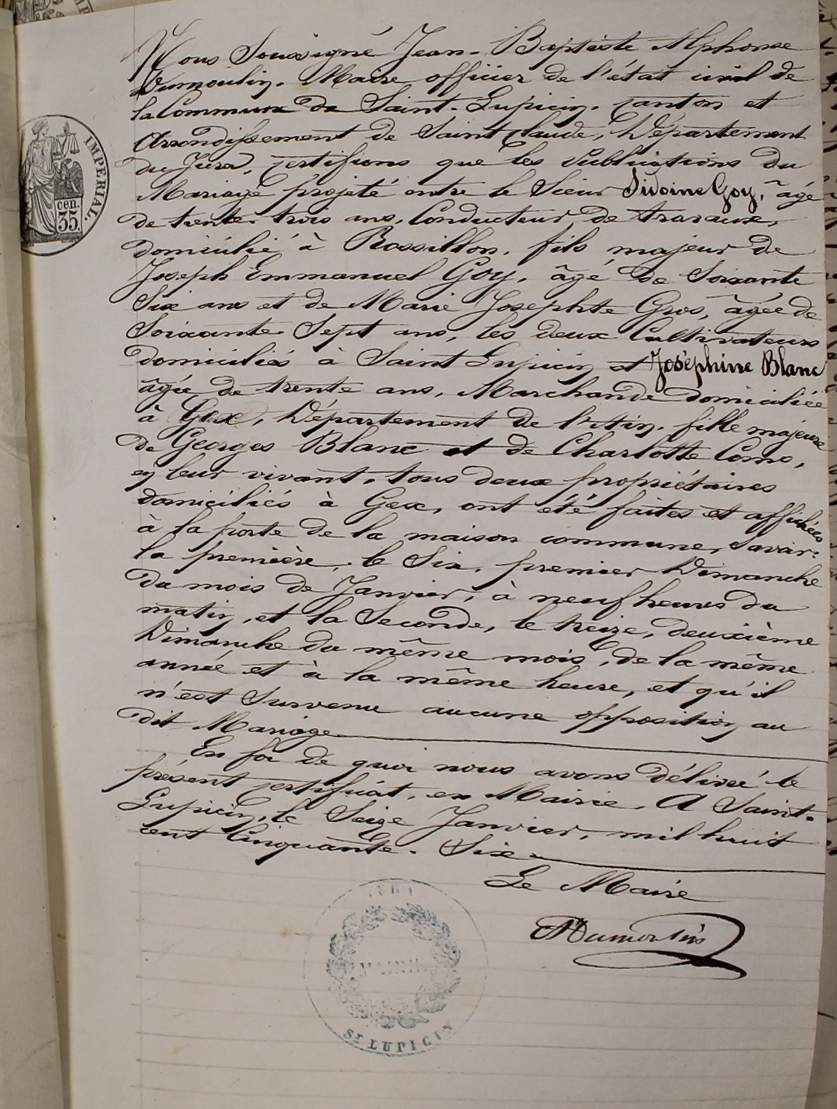 IMPERIAL.
cen.
35.
Nous Soussigné Jean-Baptiste Alphonse
Dumoulin, Maire officier de l'état civil de
la Commune de Saint-Lupicin, canton et
Arrondissement de Saint Claude, Département
du Jura, Certifions que les Publications du
Mariage projeté entre le Sieur Sidoine Goy, âgé
de trente-trois ans, Conducteur de travaux,
domicilié à Rossillon, fils majeur de
Joseph Emmanuel Goy, âgé de Soixante
Six ans et de Marie Josephte Gros, âgée de
Soixante-Sept ans, les deux Cultivateurs
domiciliés à Saint Lupicin et Joséphine Blanc
âgée de trente ans, Marchande domiciliée
à Gex, Département de l'Ain, fille majeure
de Georges Blanc et de Charlotte
en leur vivant, tous deux propriétaires
domiciliés à Gex, ont été faites et affichées
à la porte de la maison commune, Savoir:
la première, le Six, premier Dimanche
du mois de Janvier, à neuf heures du
matin, et la Seconde, le treize, deuxième
Dimanche du même mois, de la même
année et à la même heure, et qu'il
n'est Survenu aucune opposition au
dit Mariage.
En foi de quoi nous avons délivré le
présent certificat, en Mairie. A Saint-
Lupicin, le Seize Janvier, mil huit
cent Cinquante-Six.
Le Maire
ADumoulin
MAIRIE
ST. LUPICIN